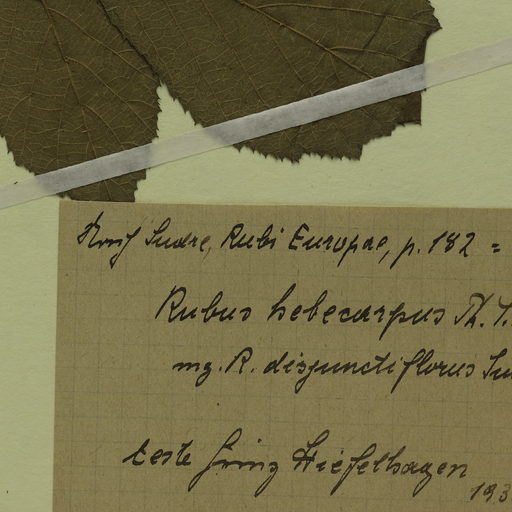 Sudre, Rubi Europae, p. 182 =
Rubus hebecarpus
mg. R. disjunctiflorus Su
teste Kiefelhagen
193